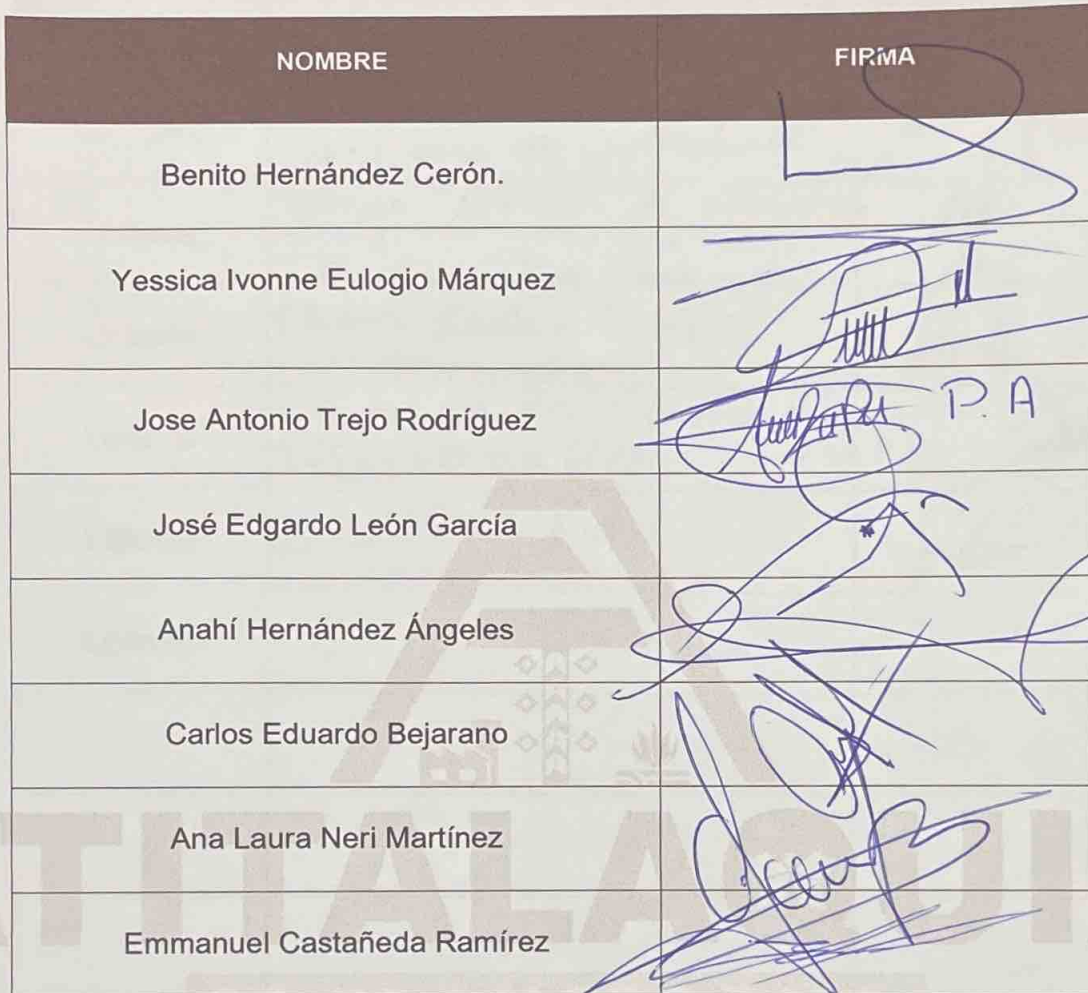 NOMBRE FIRMA
Benito Hernández Cerón.
Yessica Ivonne Eulogio Márquez
Jose Antonio Trejo Rodríguez P.A
José Edgardo León García
Anahí Hernández Ángeles
Carlos Eduardo Bejarano
Ana Laura Neri Martínez
Emmanuel Castañeda Ramírez
TITALAQUI